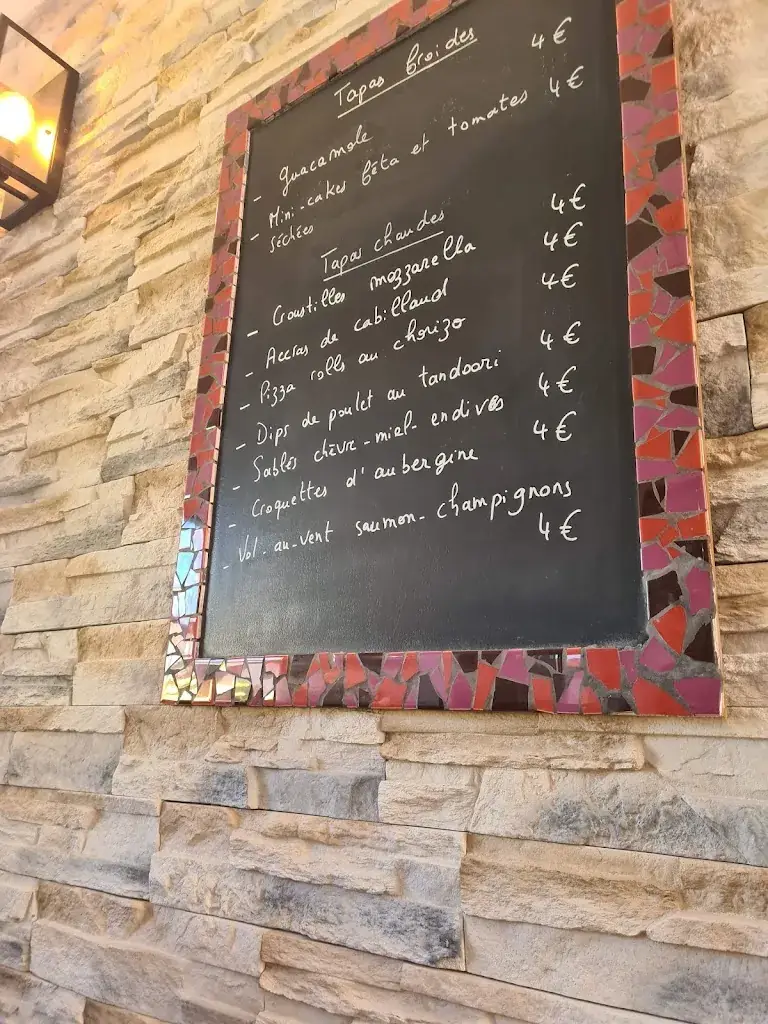 Tapas froides
- guacamole 4€
- Mini-cakes féta et tomates 4€
séchées
Tapas chaudes
- Croustilles mozzarella 4€
- Accras de cabillaud 4€
- Pizza rolls au chorizo 4€
- Dips de poulet au tandoori 4€
- Sablés chèvre-miel-endives 4€
- Croquettes d'aubergine 4€
- Vol-au-vent saumon-champignons
4€